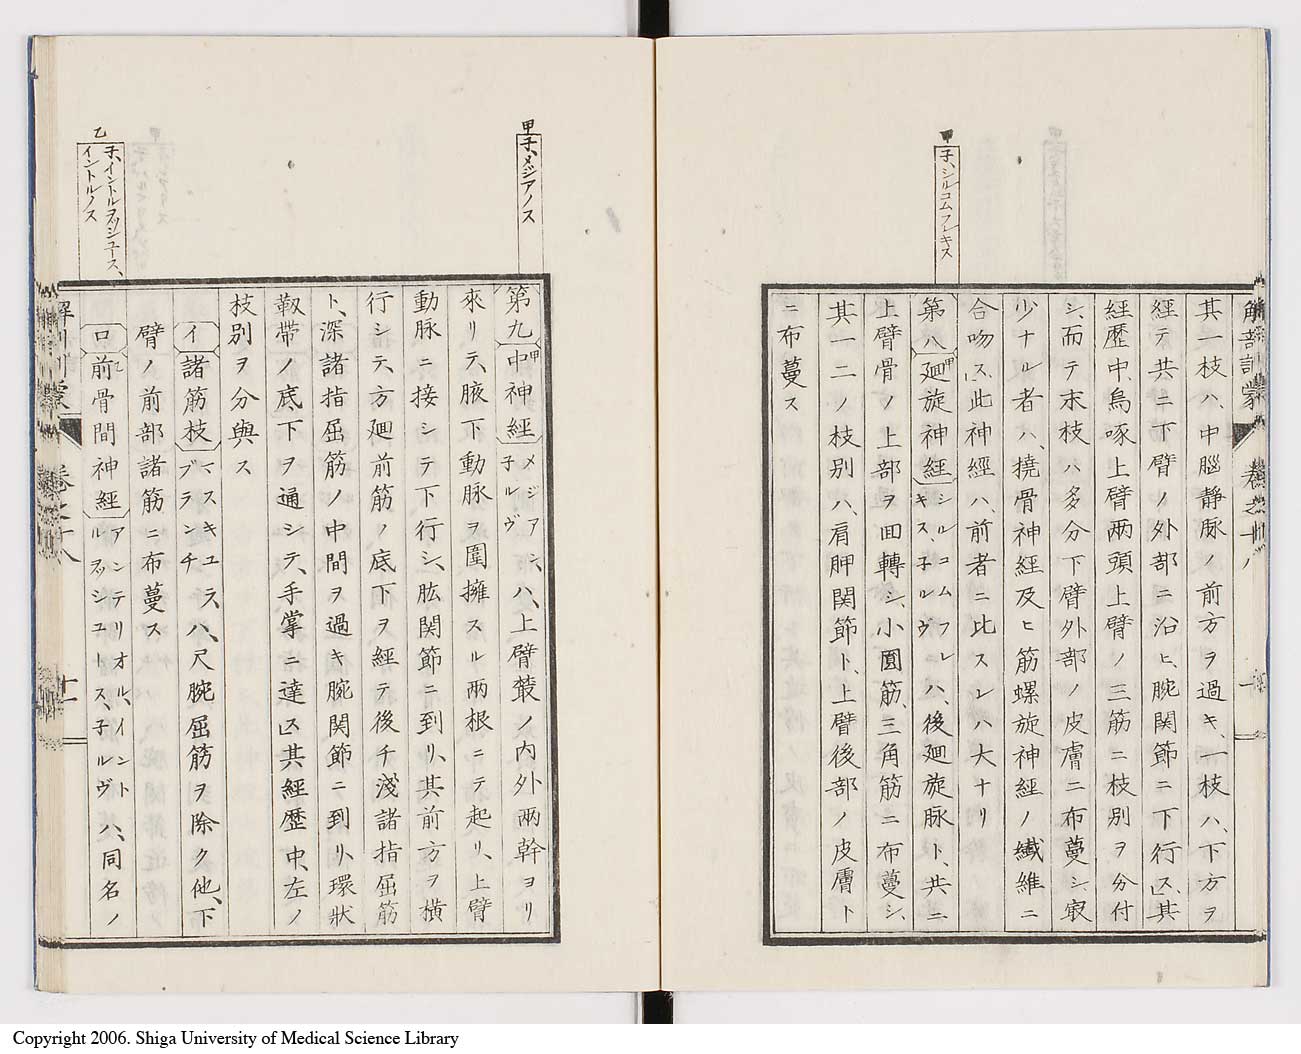 甲 子、シルコムフレキス
其一枝ハ、中腦静脉ノ前方ヲ過キ、一枝ハ、下方ヲ
經テ共ニ下臂ノ外部ニ沿ヒ、腕関節ニ下行ス、其
經歴中、烏啄上臂兩頭上臂ノ三筋ニ枝別ヲ分付
シ、而テ末枝ハ多分下臂外部ノ皮膚ニ布蔓シ、㝡
少ナル者ハ、撓骨神經及ヒ筋螺旋神經ノ纎維ニ
合吻ス、此神經ハ、前者ニ比スレハ大ナリ
第八廻旋神經 シルコムフレキス、子ルヴ ハ、後廻旋脉ト、共ニ
上臂骨ノ上部ヲ回轉シ、小圓筋、三角筋ニ布蔓シ、
其一二ノ枝別ハ、肩胛関節ト、上臂後部ノ皮膚ト
ニ布蔓ス
甲 子、メジアノス
乙 子、イントルヲッシュース、
イントルノス
第九中神經 メジアン、子ルヴ ハ、上臂叢ノ内外兩幹ヨリ
來リテ、腋下動脉ヲ圍擁スル兩根ニテ起リ、上臂
動脉ニ接シテ下行シ、肱関節ニ到リ、其前方ヲ横
行シテ、方廻前筋ノ底下ヲ經テ後チ淺諸指屈筋
ト、深諸指屈筋ノ中間ヲ過キ腕関節ニ到リ、環狀
靱帶ノ底下ヲ通シテ、手掌ニ達ス其經歴中、左ノ
枝別ヲ分與ス
イ諸筋枝 マスキユラ、ブランチ ハ、尺腕屈筋ヲ除ク他、下
臂ノ前部諸筋ニ布蔓ス
ロ前骨間神經 アンテリオル、イントルヲッシユース、子ルヴ ハ、同名ノ
Copyright 2006. Shiga University of Medical Science Library